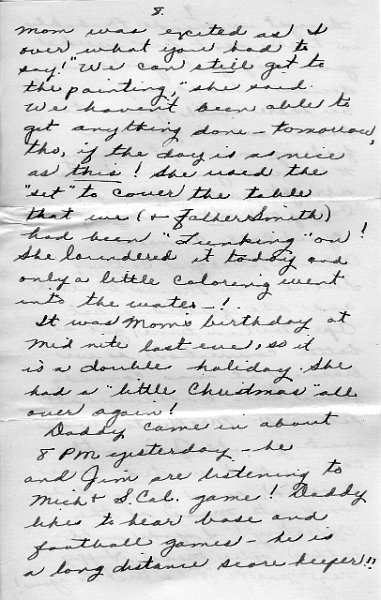 8.
Mom was excited as I
over what you had to
say! "We can still get to
the painting," she said.
We haven't been able to
get anything done - tomorrow,
tho, if the day is as nice
as this! She used the
"set" to cover the table
that we (+ Father Smith)
had been "Tunking" on!
She laundered it today and
only a little coloring went
into the water -!
It was Mom's birthday at
mid nite last eve, so it
is a double holiday. She
had a "little Christmas" all
over again!
Daddy came in about
8 PM yesterday - he
and Jim are listening to
Mich + S. Cal. game! Daddy
likes to hear base and
football games - he is
a long distance score keeper!!